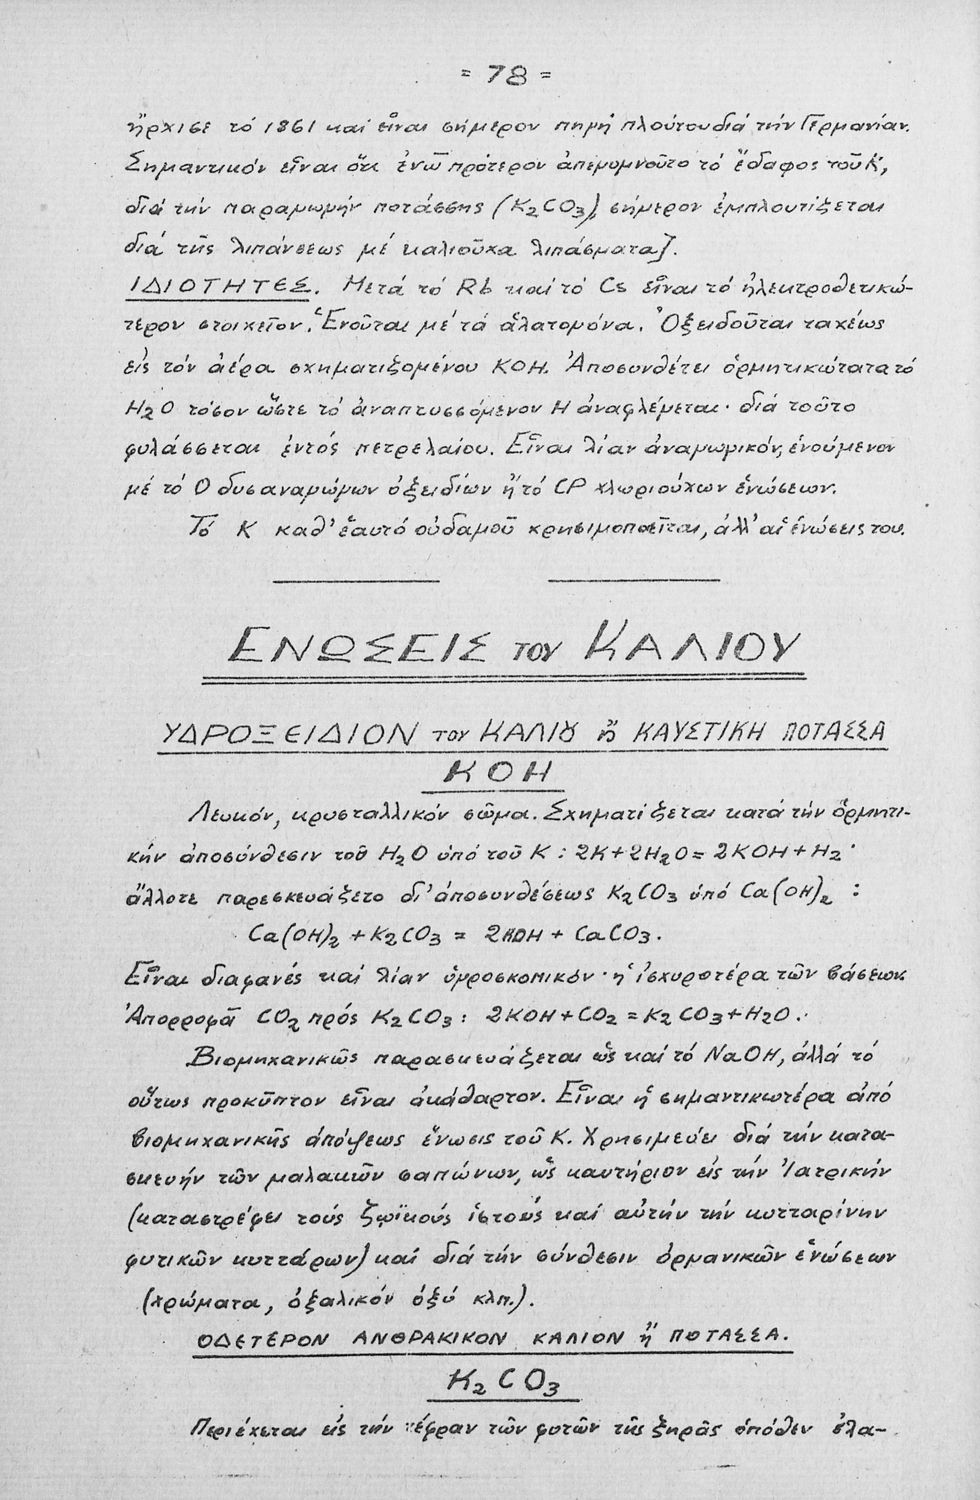 = 78 =
ἤρχισε τό 1861 καί εἶναι σήμερον πηγή πλούτου διά τήν Γερμανίαν.
Σημαντικόν εἶναι ὅτι ἐνῶ πρότερον ἀπεγυμνοῦτο τό ἔδαφος τοῦ Κ,
διά τήν παραγωγήν ποτάσσης (K₂CO₃), σήμερον ἐμπλουτίζεται
διά τῆς λιπάνσεως μέ καλιοῦχα λιπάσματα].
ΙΔΙΟΤΗΤΕΣ. Μετά τό Rb καί τό Cs εἶναι τό ἠλεκτροθετικώ-
τερον στοιχεῖον. Ἑνοῦται μέ τά ἁλατογόνα. Ὀξειδοῦται ταχέως
εἰς τόν ἀέρα σχηματιζομένου KOH. Ἀποσυνθέτει ὁρμητικώτατα τό
H₂O τόσον ὥστε τό ἀναπτυσσόμενον H ἀναφλέγεται· διά τοῦτο
φυλάσσεται ἐντός πετρελαίου. Εἶναι λίαν ἀναγωγικόν, ἑνούμενον
μέ τό O δυσαναγώγων ὀξειδίων ἤ τό Cl χλωριούχων ἑνώσεων.
Τό Κ καθ' ἑαυτό οὐδαμοῦ χρησιμοποιεῖται, ἀλλ' αἱ ἑνώσεις του.
ΕΝΩΣΕΙΣ του ΚΑΛΙΟΥ
ΥΔΡΟΞΕΙΔΙΟΝ του ΚΑΛΙȢ ἤ ΚΑΥΣΤΙΚΗ ΠΟΤΑΣΣΑ
KOH
Λευκόν, κρυσταλλικόν σῶμα. Σχηματίζεται κατά τήν ὁρμητι-
κήν ἀποσύνθεσιν τοῦ H₂O ὑπό τοῦ K : 2K+2H₂O = 2KOH + H₂·
ἄλλοτε παρεσκευάζετο δι' ἀποσυνθέσεως K₂CO₃ ὑπό Ca(OH)₂ :
Ca(OH)₂ + K₂CO₃ = 2KOH + CaCO₃.
Εἶναι διαφανές καί λίαν ὑγροσκοπικόν· ἡ ἰσχυροτέρα τῶν βάσεων.
Ἀπορροφᾶ CO₂ πρός K₂CO₃ : 2KOH + CO₂ = K₂CO₃ + H₂O.
Βιομηχανικῶς παρασκευάζεται ὡς καί τό NaOH, ἀλλά τό
οὕτως προκῦπτον εἶναι ἀκάθαρτον. Εἶναι ἡ σημαντικωτέρα ἀπό
βιομηχανικῆς ἀπόψεως ἕνωσις τοῦ Κ. Χρησιμεύει διά τήν κατα-
σκευήν τῶν μαλακῶν σαπώνων, ὡς καυτήριον εἰς τήν Ἰατρικήν
(καταστρέφει τούς ζωϊκούς ἱστούς καί αὐτήν τήν κυτταρίνην
φυτικῶν κυττάρων) καί διά τήν σύνθεσιν ὀργανικῶν ἑνώσεων
(χρώματα, ὀξαλικόν ὀξύ κλπ.).
ΟΔΕΤΕΡΟΝ ΑΝΘΡΑΚΙΚΟΝ ΚΑΛΙΟΝ ἤ ΠΟΤΑΣΣΑ.
K₂CO₃
Περιέχεται εἰς τήν τέφραν τῶν φυτῶν τῆς ξηρᾶς ὁπόθεν ἐλα-